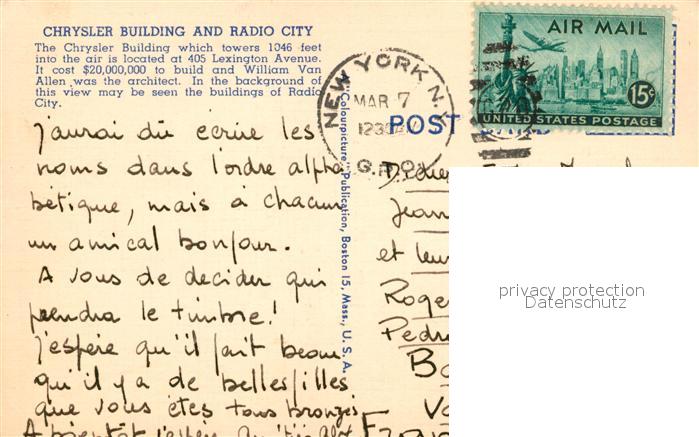 CHRYSLER BUILDING AND RADIO CITY
The Chrysler Building which towers 1046 feet
into the air is located at 405 Lexington Avenue.
It cost $20,000,000 to build and William Van
Allen was the architect. In the background of
this view may be seen the buildings of Radio
City.
AIR MAIL
15¢
UNITED STATES POSTAGE
NEW YORK N.Y.
MAR 7
G.P.O.
POST
"Colourpicture" Publication, Boston 15, Mass., U. S. A.
j'aurai dû écrire les
noms dans l'ordre alpha
bétique, mais à chacun
un amical bonjour.
A vous de décider qui
prendra le timbre!
j'espère qu'il fait beau
qu'il y a de belles filles
que vous êtes tous bronzés
A bientôt j'espère
Jean
et leur
Roger
Pedro
privacy protection
Datenschutz